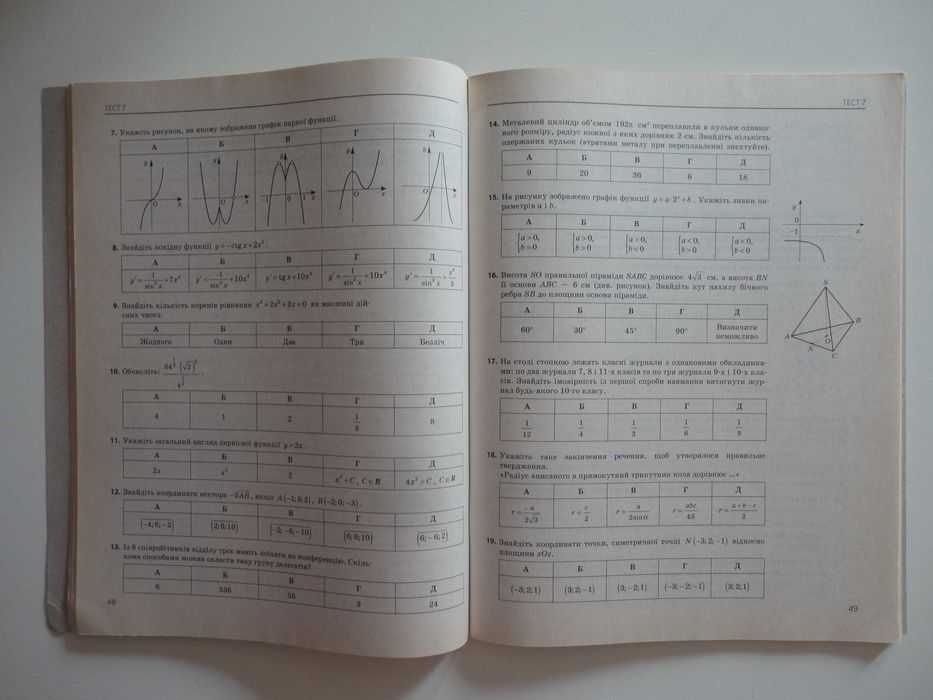 ТЕСТ 7
7. Укажіть рисунок, на якому зображено графік парної функції.
А Б В Г Д
y x O y x O y x -1 0 1 y x O y x O
8. Знайдіть похідну функції y=−ctg x+2x⁵.
А Б В Г Д
y′=1/sin² x+7x⁴ y′=−1/sin² x+10x⁴ y′=tg x+10x⁴ y′=1/sin² x+10x⁴
9. Знайдіть кількість коренів рівняння x³+2x²+3x=0 на множині дій-
сних чисел.
А Б В Г Д
Жодного Один Два Три Безліч
10. Обчисліть:
А Б В Г Д
4 1 2 1/8 8
11. Укажіть загальний вигляд первісної функції y=2x.
А Б В Г Д
2x x² 2 x²+C, C∈R 4x²+C, C∈R
12. Знайдіть координати вектора −2AB, якщо A(−1; 2; 2), B(−2; 0; −3).
А Б В Г Д
(−4; 6; −2) (2; 6; 10) (−2; −6; −10) (6; 6; 10) (6; −6; 2)
13. Із 8 співробітників відділу троє мають поїхати на конференцію. Скіль-
кома способами можна скласти таку групу делегатів?
А Б В Г Д
6 336 56 3 24
48
ТЕСТ 7
14. Металевий циліндр об'ємом 192π см³ переплавили в кульки однако-
вого розміру, радіус кожної з яких дорівнює 2 см. Знайдіть кількість
одержаних кульок (втратами металу при переплавленні знехтуйте).
А Б В Г Д
9 20 36 6 18
15. На рисунку зображено графік функції y=a·2ˣ+b. Укажіть знаки па-
раметрів a і b.
А Б В Г Д
{a>0, {a>0, {a>0, {a<0, {a<0,
b=0 b>0 b<0 b>0 b<0
y
0
−1 x
16. Висота SO правильної піраміди SABC дорівнює 4√3 см, а висота BN
її основи ABC — 6 см (див. рисунок). Знайдіть кут нахилу бічного
ребра SB до площини основи піраміди.
А Б В Г Д
60° 30° 45° 90° Визначити
неможливо
S
B
A O
N C
17. На столі стопкою лежать класні журнали з однаковими обкладинка-
ми: по два журнали 7, 8 і 11-х класів та по три журнали 9-х і 10-х кла-
сів. Знайдіть імовірність із першої спроби навмання витягнути жур-
нал будь-якого 10-го класу.
А Б В Г Д
1/12 1/4 1/3 1/6 1/9
18. Укажіть таке закінчення речення, щоб утворилося правильне
твердження.
«Радіус вписаного в прямокутний трикутник кола дорівнює ...»
А Б В Г Д
r=a/2√3 r=c/2 r=a/2sinα r=abc/4S r=a+b−c/2
19. Знайдіть координати точки, симетричної точці N(−3; 2; −1) відносно
площини xOz.
А Б В Г Д
(−3; 2; 1) (3; 2; −1) (3; −2; 1) (−3; −2; −1) (3; 2; 1)
49